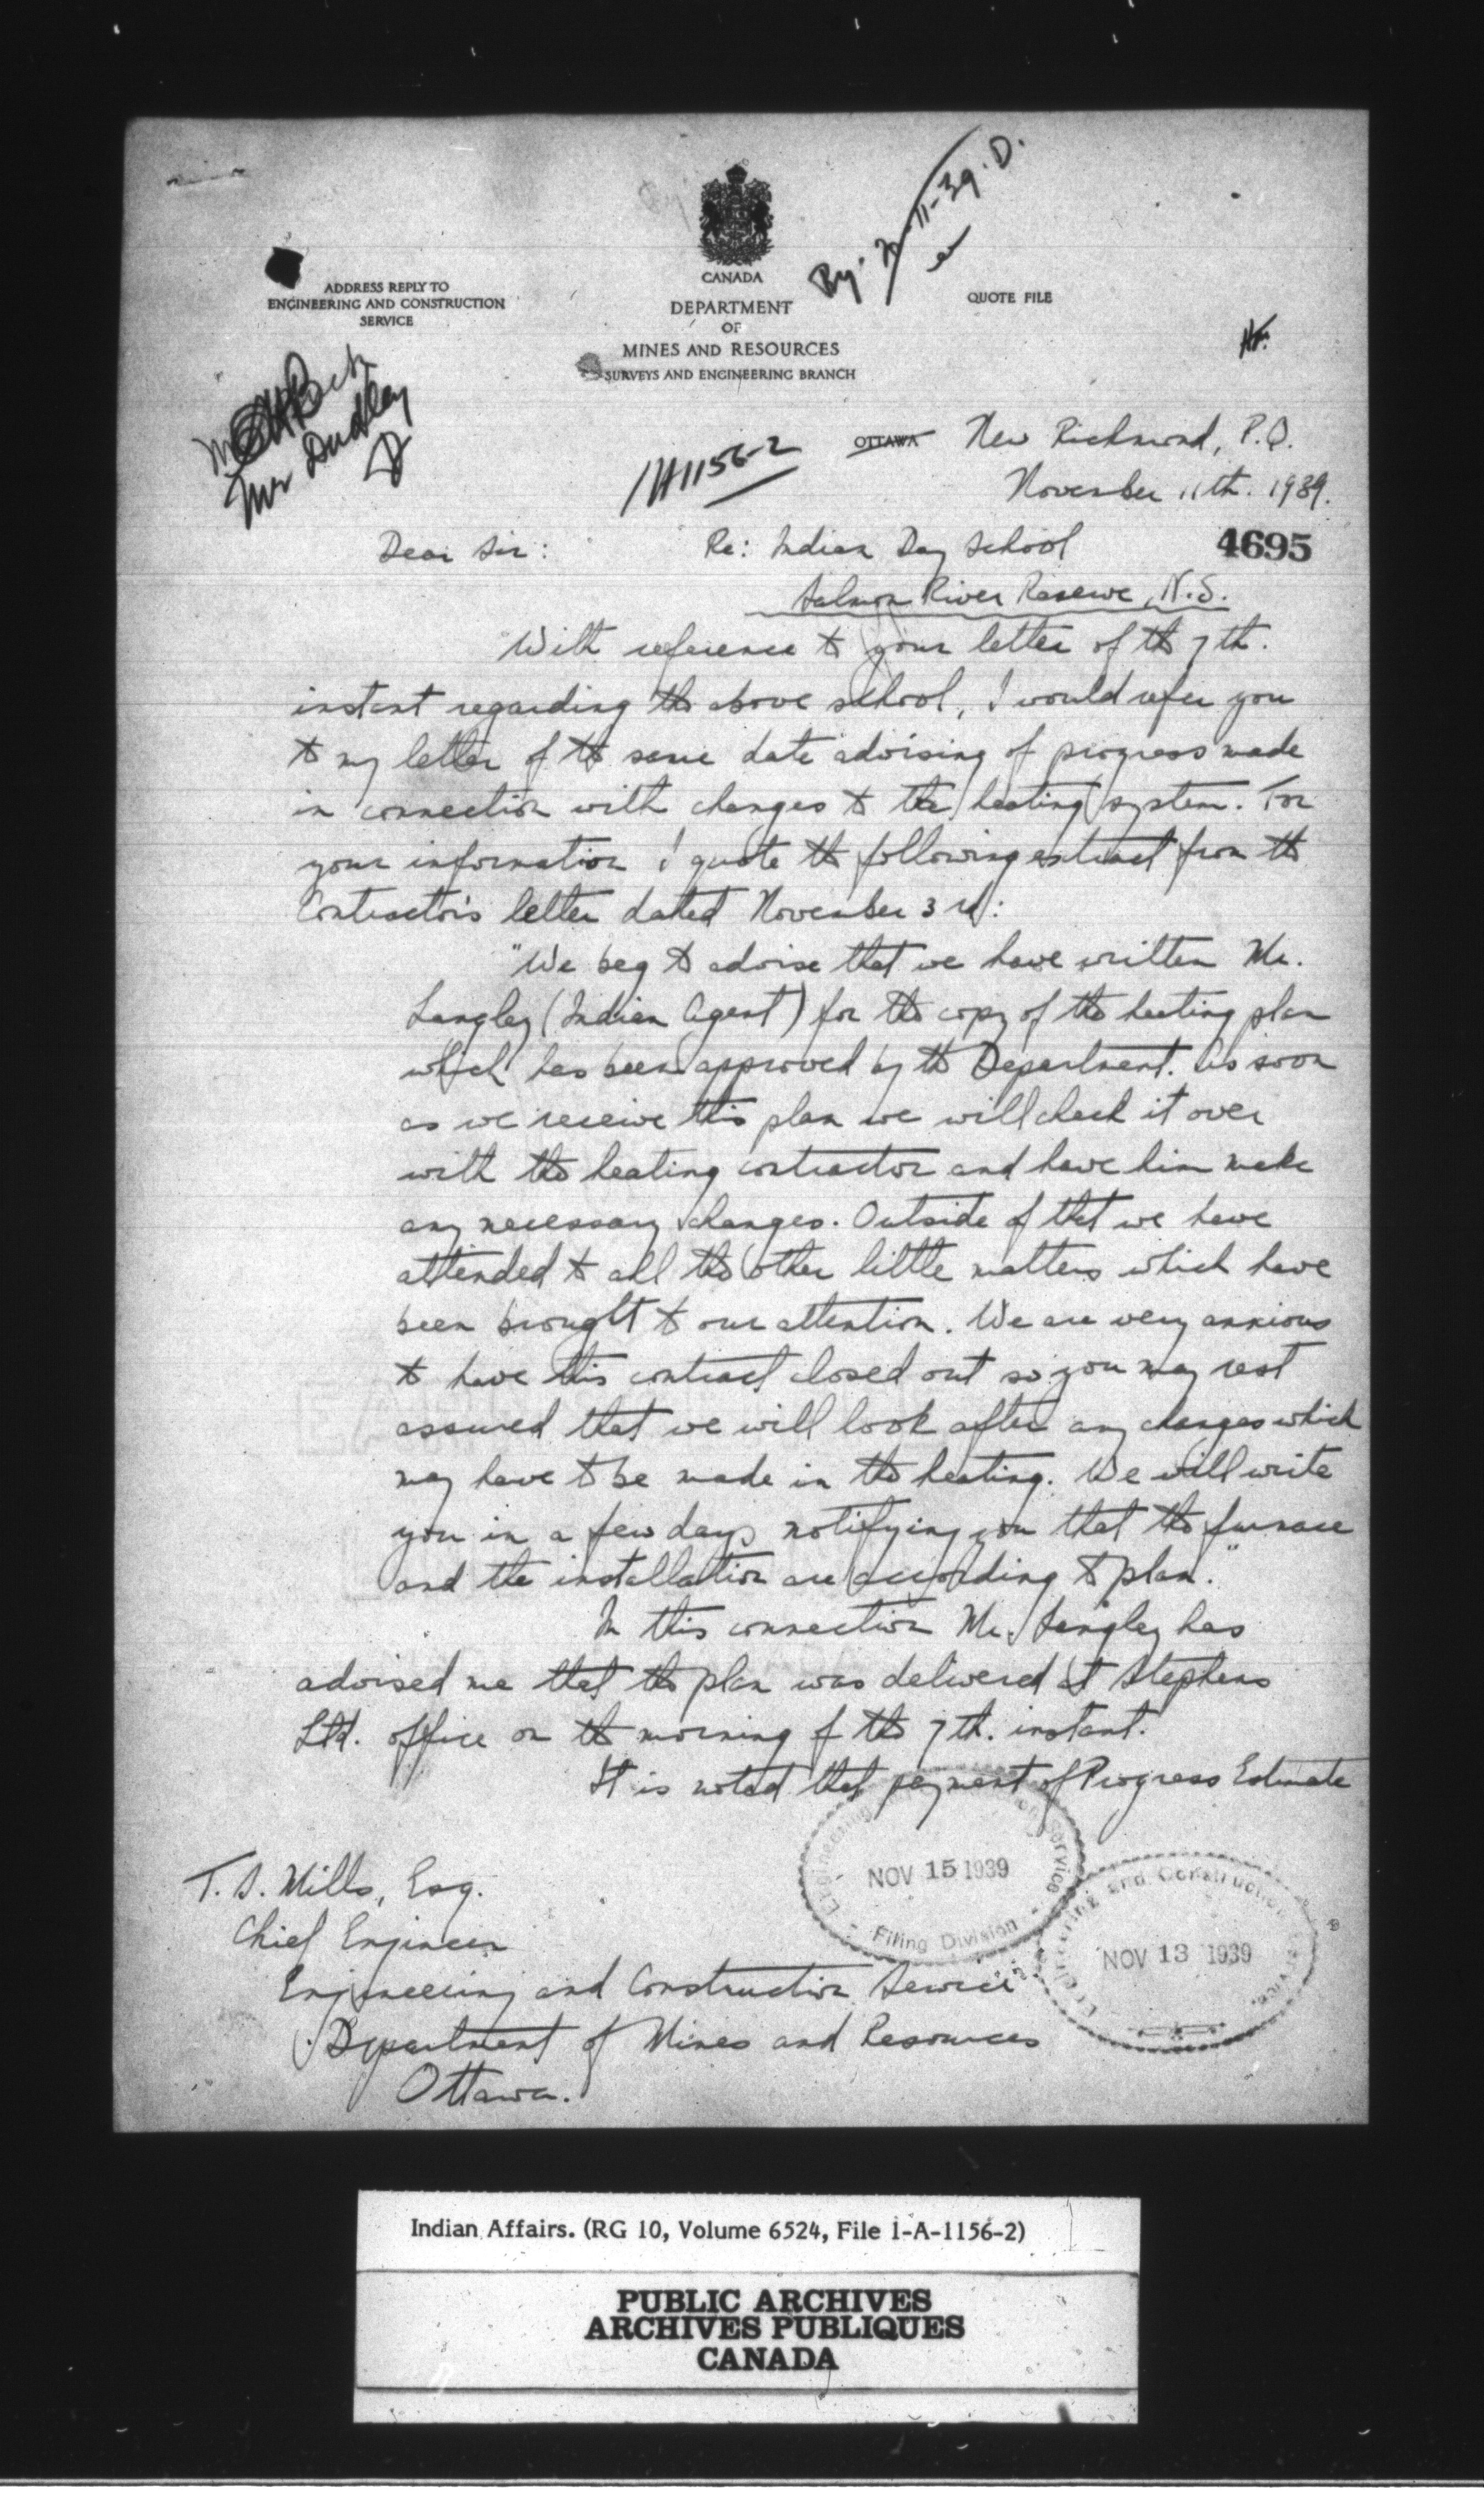 By. 20-11-39. D.
CANADA
ADDRESS REPLY TO
ENGINEERING AND CONSTRUCTION
SERVICE
DEPARTMENT
OF
MINES AND RESOURCES
SURVEYS AND ENGINEERING BRANCH
QUOTE FILE
Mr Dudley
D
1A1156-2
OTTAWA New Richmond, P.Q.
November 11th. 1939.
4695
Dear Sir: Re: Indian Day School
Salmon River Reserve, N.S.
With reference to your letter of the 7th.
instant regarding the above school, I would refer you
to my letter of the same date advising of progress made
in connection with changes to the heating system. For
your information I quote the following extract from the
Contractor's letter dated November 3rd:
"We beg to advise that we have written Mr.
Langley (Indian Agent) for the copy of the heating plan
which has been approved by the Department. As soon
as we receive this plan we will check it over
with the heating contractor and have him make
any necessary changes. Outside of that we have
attended to all the other little matters which have
been brought to our attention. We are very anxious
to have this contract closed out so you may rest
assured that we will look after any changes which
may have to be made in the heating. We will write
you in a few days notifying you that the furnace
and the installation are according to plan."
In this connection Mr. Langley has
advised me that the plan was delivered at Stephens
Ltd. office on the morning of the 7th. instant.
It is noted that payment of Progress Estimate
Engineering and Construction Service
NOV 15 1939
Filing Division
Engineering and Construction Service.
NOV 13 1939
T. S. Mills, Esq.
Chief Engineer
Engineering and Construction Service
Department of Mines and Resources
Ottawa.
Indian Affairs. (RG 10, Volume 6524, File 1-A-1156-2)
PUBLIC ARCHIVES
ARCHIVES PUBLIQUES
CANADA